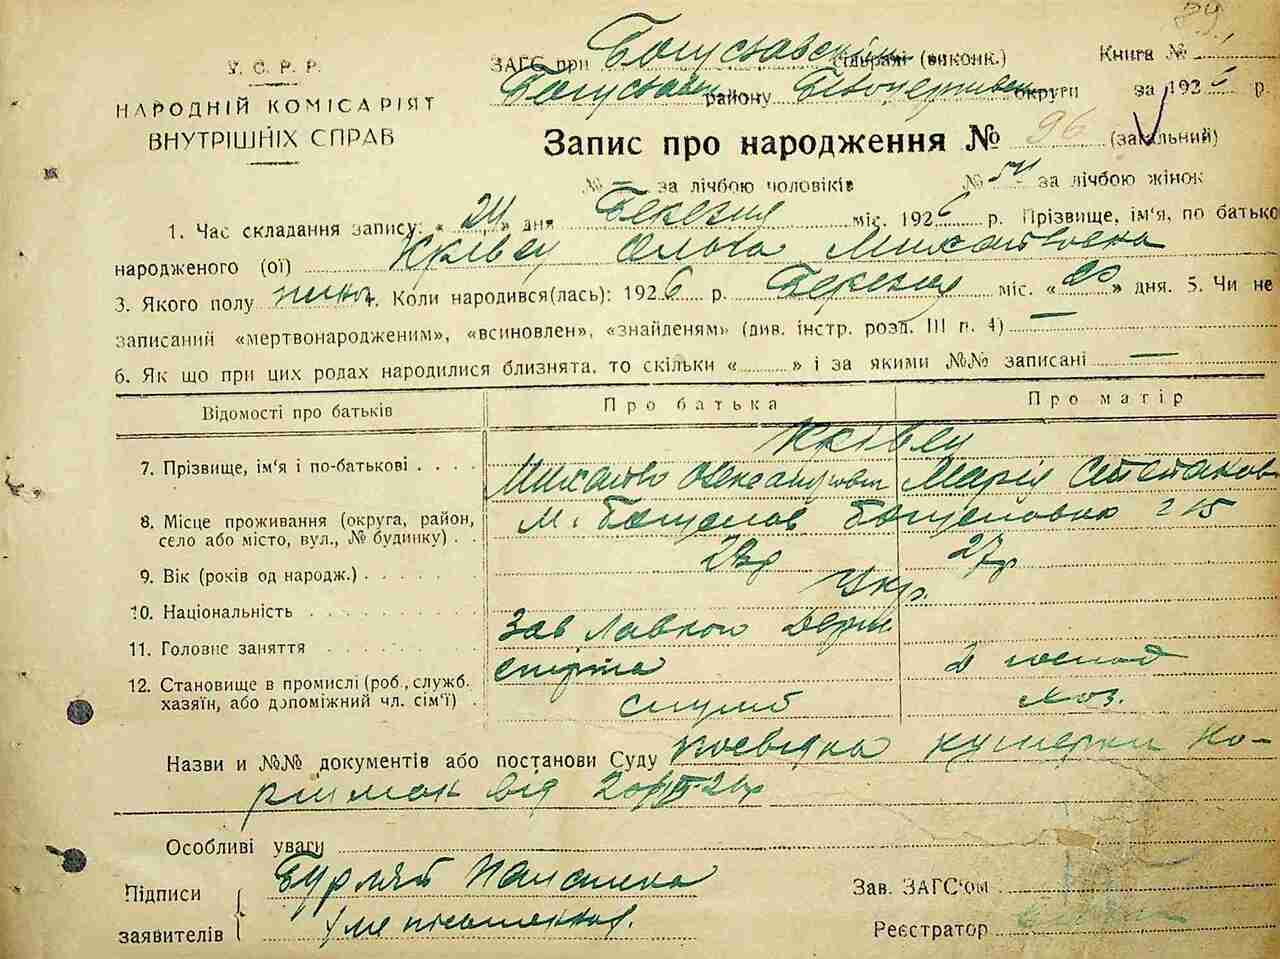 У. С. Р. Р.
НАРОДНІЙ КОМІСАРІЯТ
ВНУТРІШНІХ СПРАВ
ЗАГС при Богуславскім (виконк.) Книга №
району Білоцерківськ округи за 1926 р.
Запис про народження № 96 (загальний)
№ — за лічбою чоловіків № 54 за лічбою жінок
1. Час складання запису: « 24 » дня Березня міс. 1926 р. Прізвище, ім'я, по батько
народженого (ої) Крівец Ольга Михайловна
3. Якого полу жіноч. Коли народився(лась): 1926 р. Березня міс. «20» дня. 5. Чи не
записаний «мертвонародженим», «всиновлен», «знайденям» (див. інстр. розд. III п. 4) —
6. Як що при цих родах народилися близнята, то скільки « » і за якими №№ записані —
Відомості про батьків
Про батька
Про матір
7. Прізвище, ім'я і по-батькові
Крівец
Михайло Олександрович
Марія Степанов
8. Місце проживання (округа, район,
село або місто, вул., № будинку)
м. Богуслав
9. Вік (років од народж.)
27р
10. Національність
Укр.
11. Головне заняття
Зав Лавкою Держ
спірта
12. Становище в промислі (роб., служб.
хазяїн, або допоміжний чл. сім'ї)
служб
хоз.
Назви и №№ документів або постанови Суду
від
Особливі уваги
Підписи
заявителів
Зав. ЗАГС'ом
Реєстратор